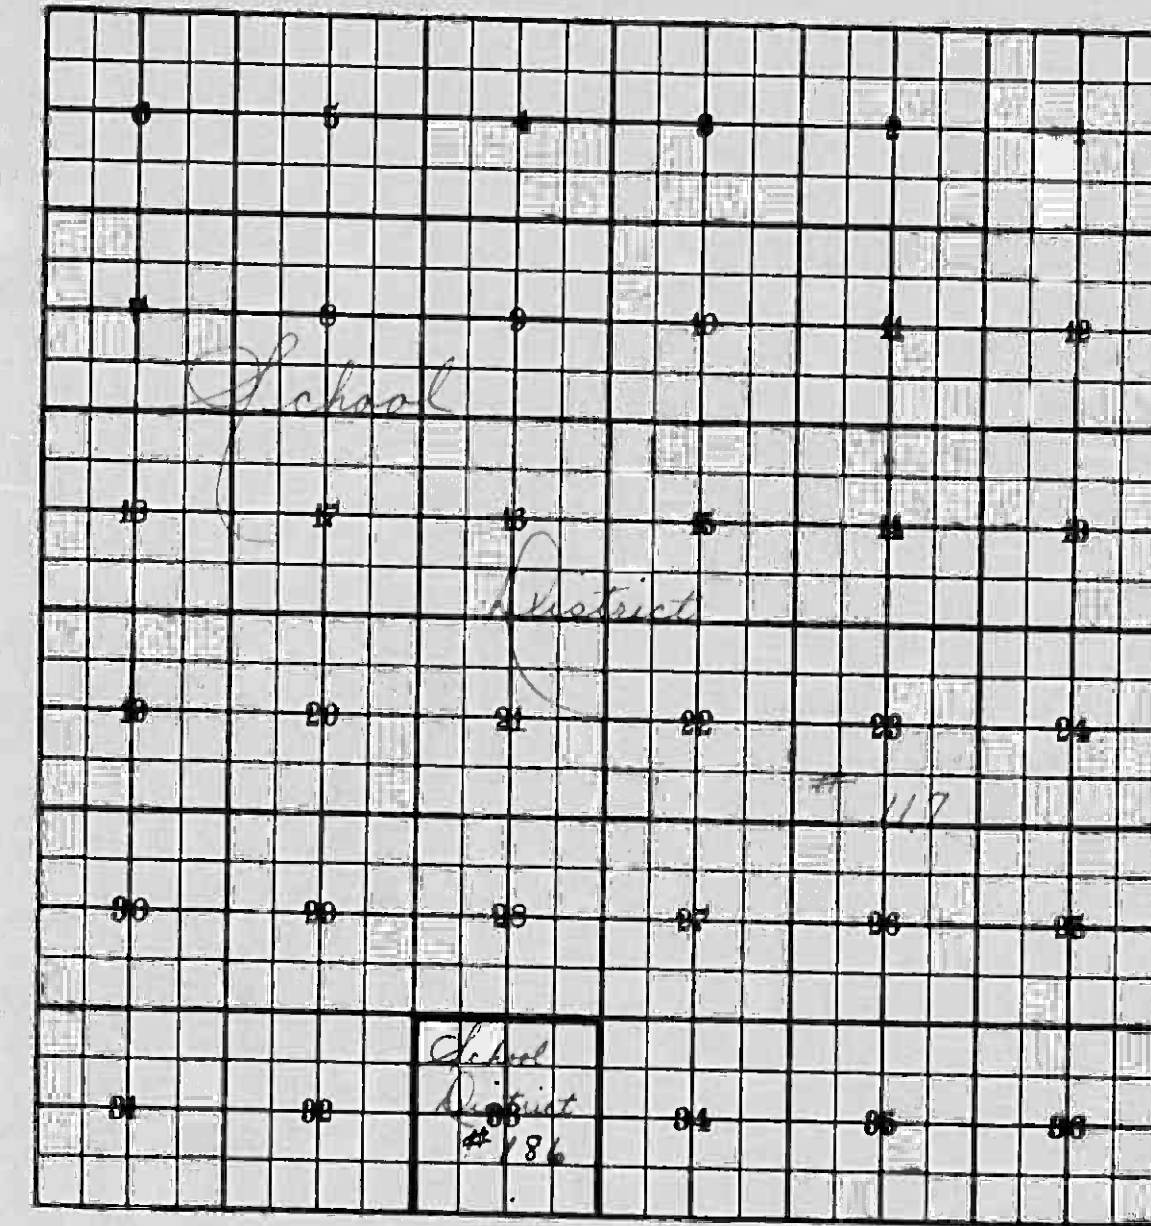 6 5 4 3 2
7 8 9 10 11 12
School
18 17 16 15 14 13
District
19 20 21 22 23 24
# 117
30 29 28 27 26 25
School
District
31 32 33 34 35 36
# 186